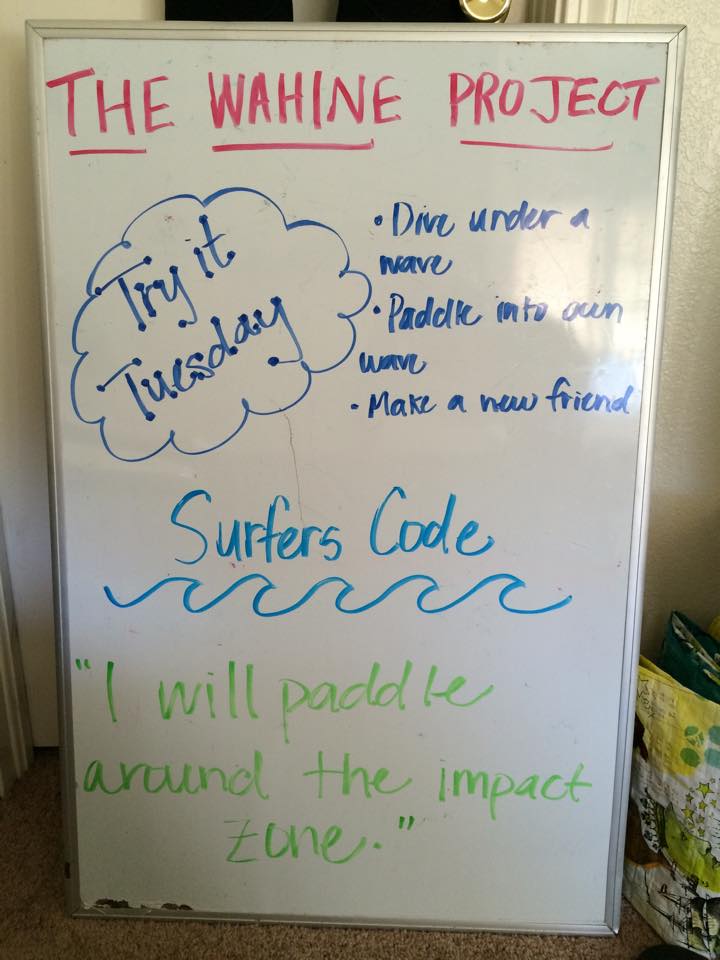 THE WAHINE PROJECT
Try it
Tuesday
• Dive under a
wave
• Paddle into own
wave
• Make a new friend
Surfers Code
"I will paddle
around the impact
zone."